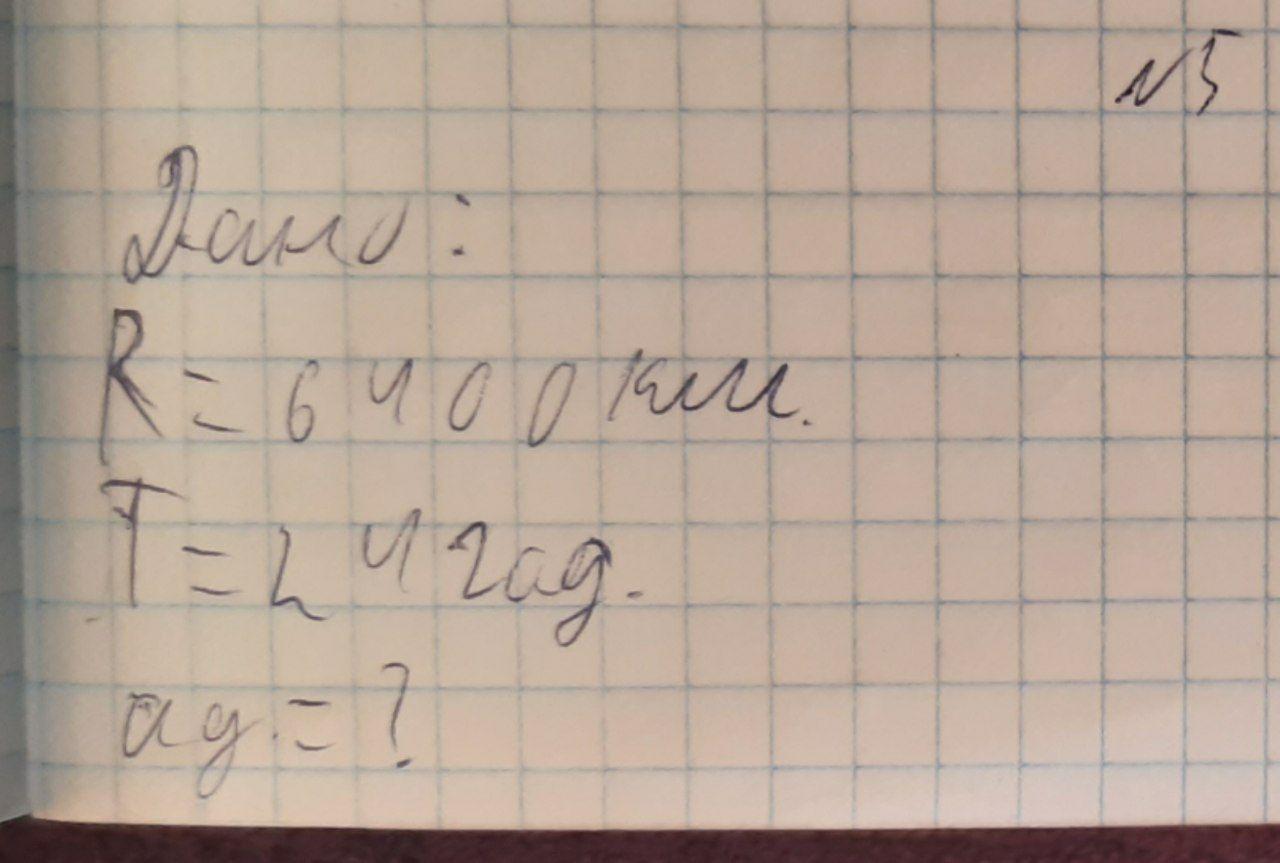 №5
Дано:
R = 6400 км.
T = 24 год.
aд. = ?